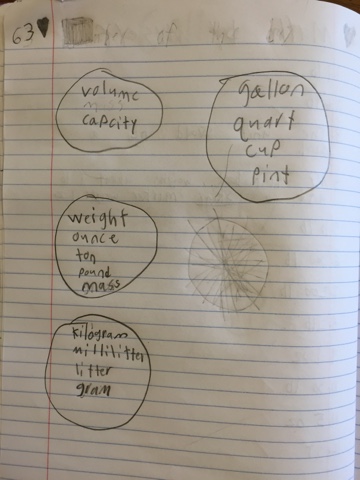 63
volume
mass
capacity
gallon
quart
cup
pint
weight
ounce
ton
pound
mass
kilogram
millilitter
litter
gram